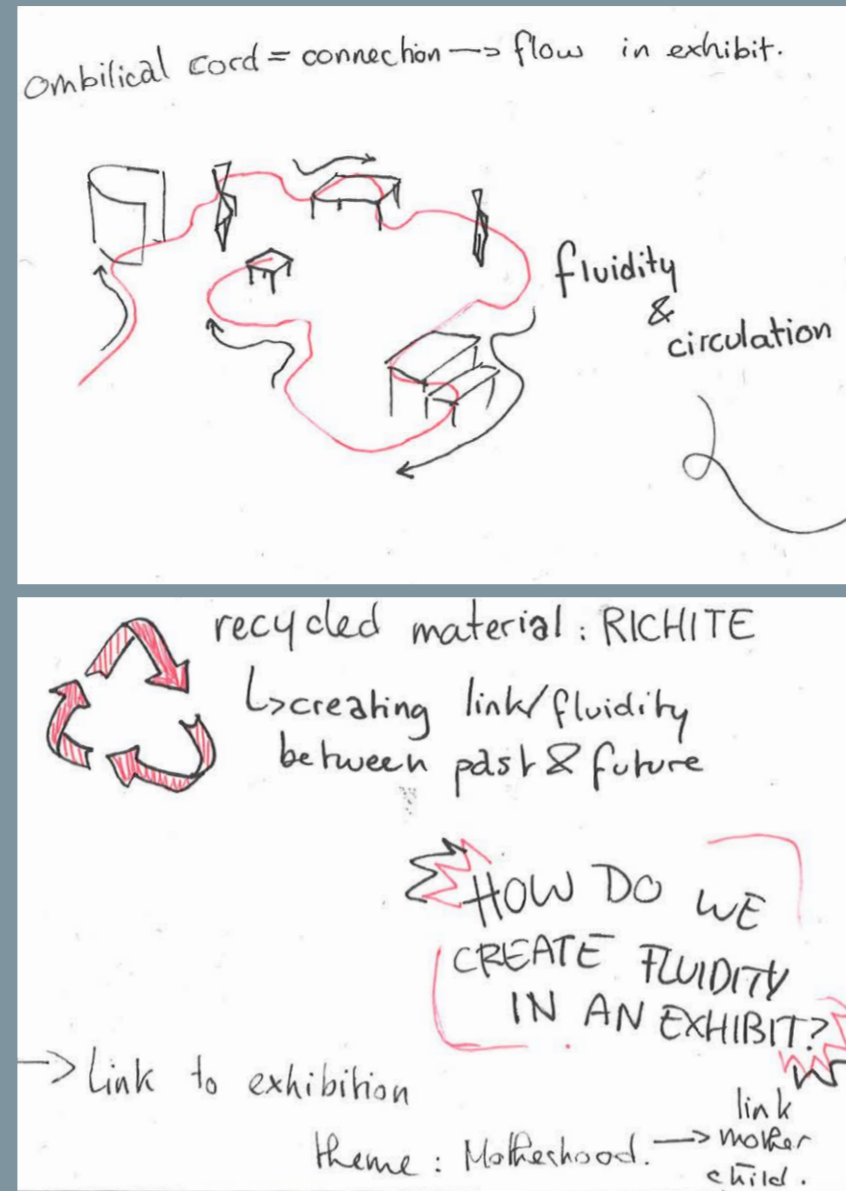 ombilical cord = connection → flow in exhibit.
fluidity
&
circulation
recycled material : RICHITE
↳creating link/fluidity
between past & future
HOW DO WE
CREATE FLUIDITY
IN AN EXHIBIT?
→ Link to exhibition
theme : Motherhood. → link
mother
child.